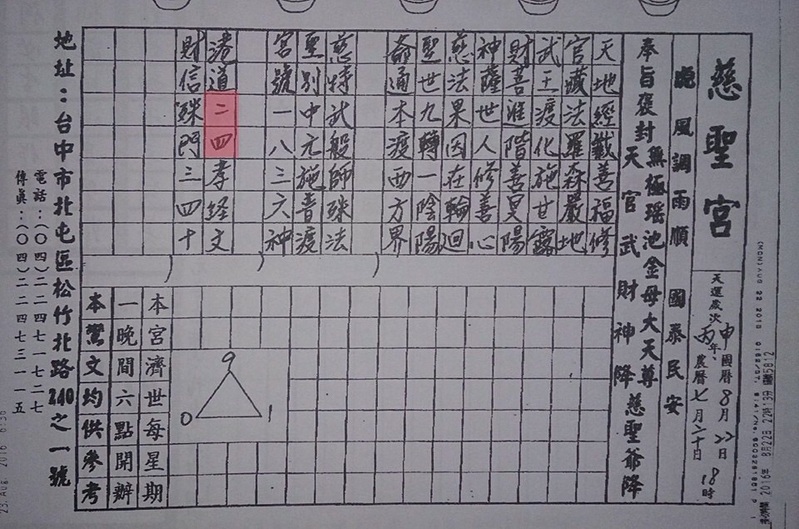 2016年 8月22日 22時13分
慈聖宮
天運歲次丙申年 國曆8月22日 農曆七月二十日 18時
風調雨順 國泰民安
奉旨褒封 無極瑤池金母大天尊 天官武財神降 慈聖爺降
天地經懺善福修
官藏法羅森嚴地
武王渡化施甘露
財善淮階善昊陽
神薩世人修善心
慈法果因在輪迴
聖世九轉一陰陽
爺通本渡西方界
慈特武般師殊法
聖別中元施普渡
宮號一八三六神
港道二四孝經文
財信殊門三四十
9
0 1
本宮濟世每星期
一晚間六點開辦
本鸞文均供參考
地址：台中市北屯區松竹北路240之一號
電話：(〇四)二二四七一七二七
傳眞：(〇四)二二四七三一一五
23. Aug. 2016 6:36